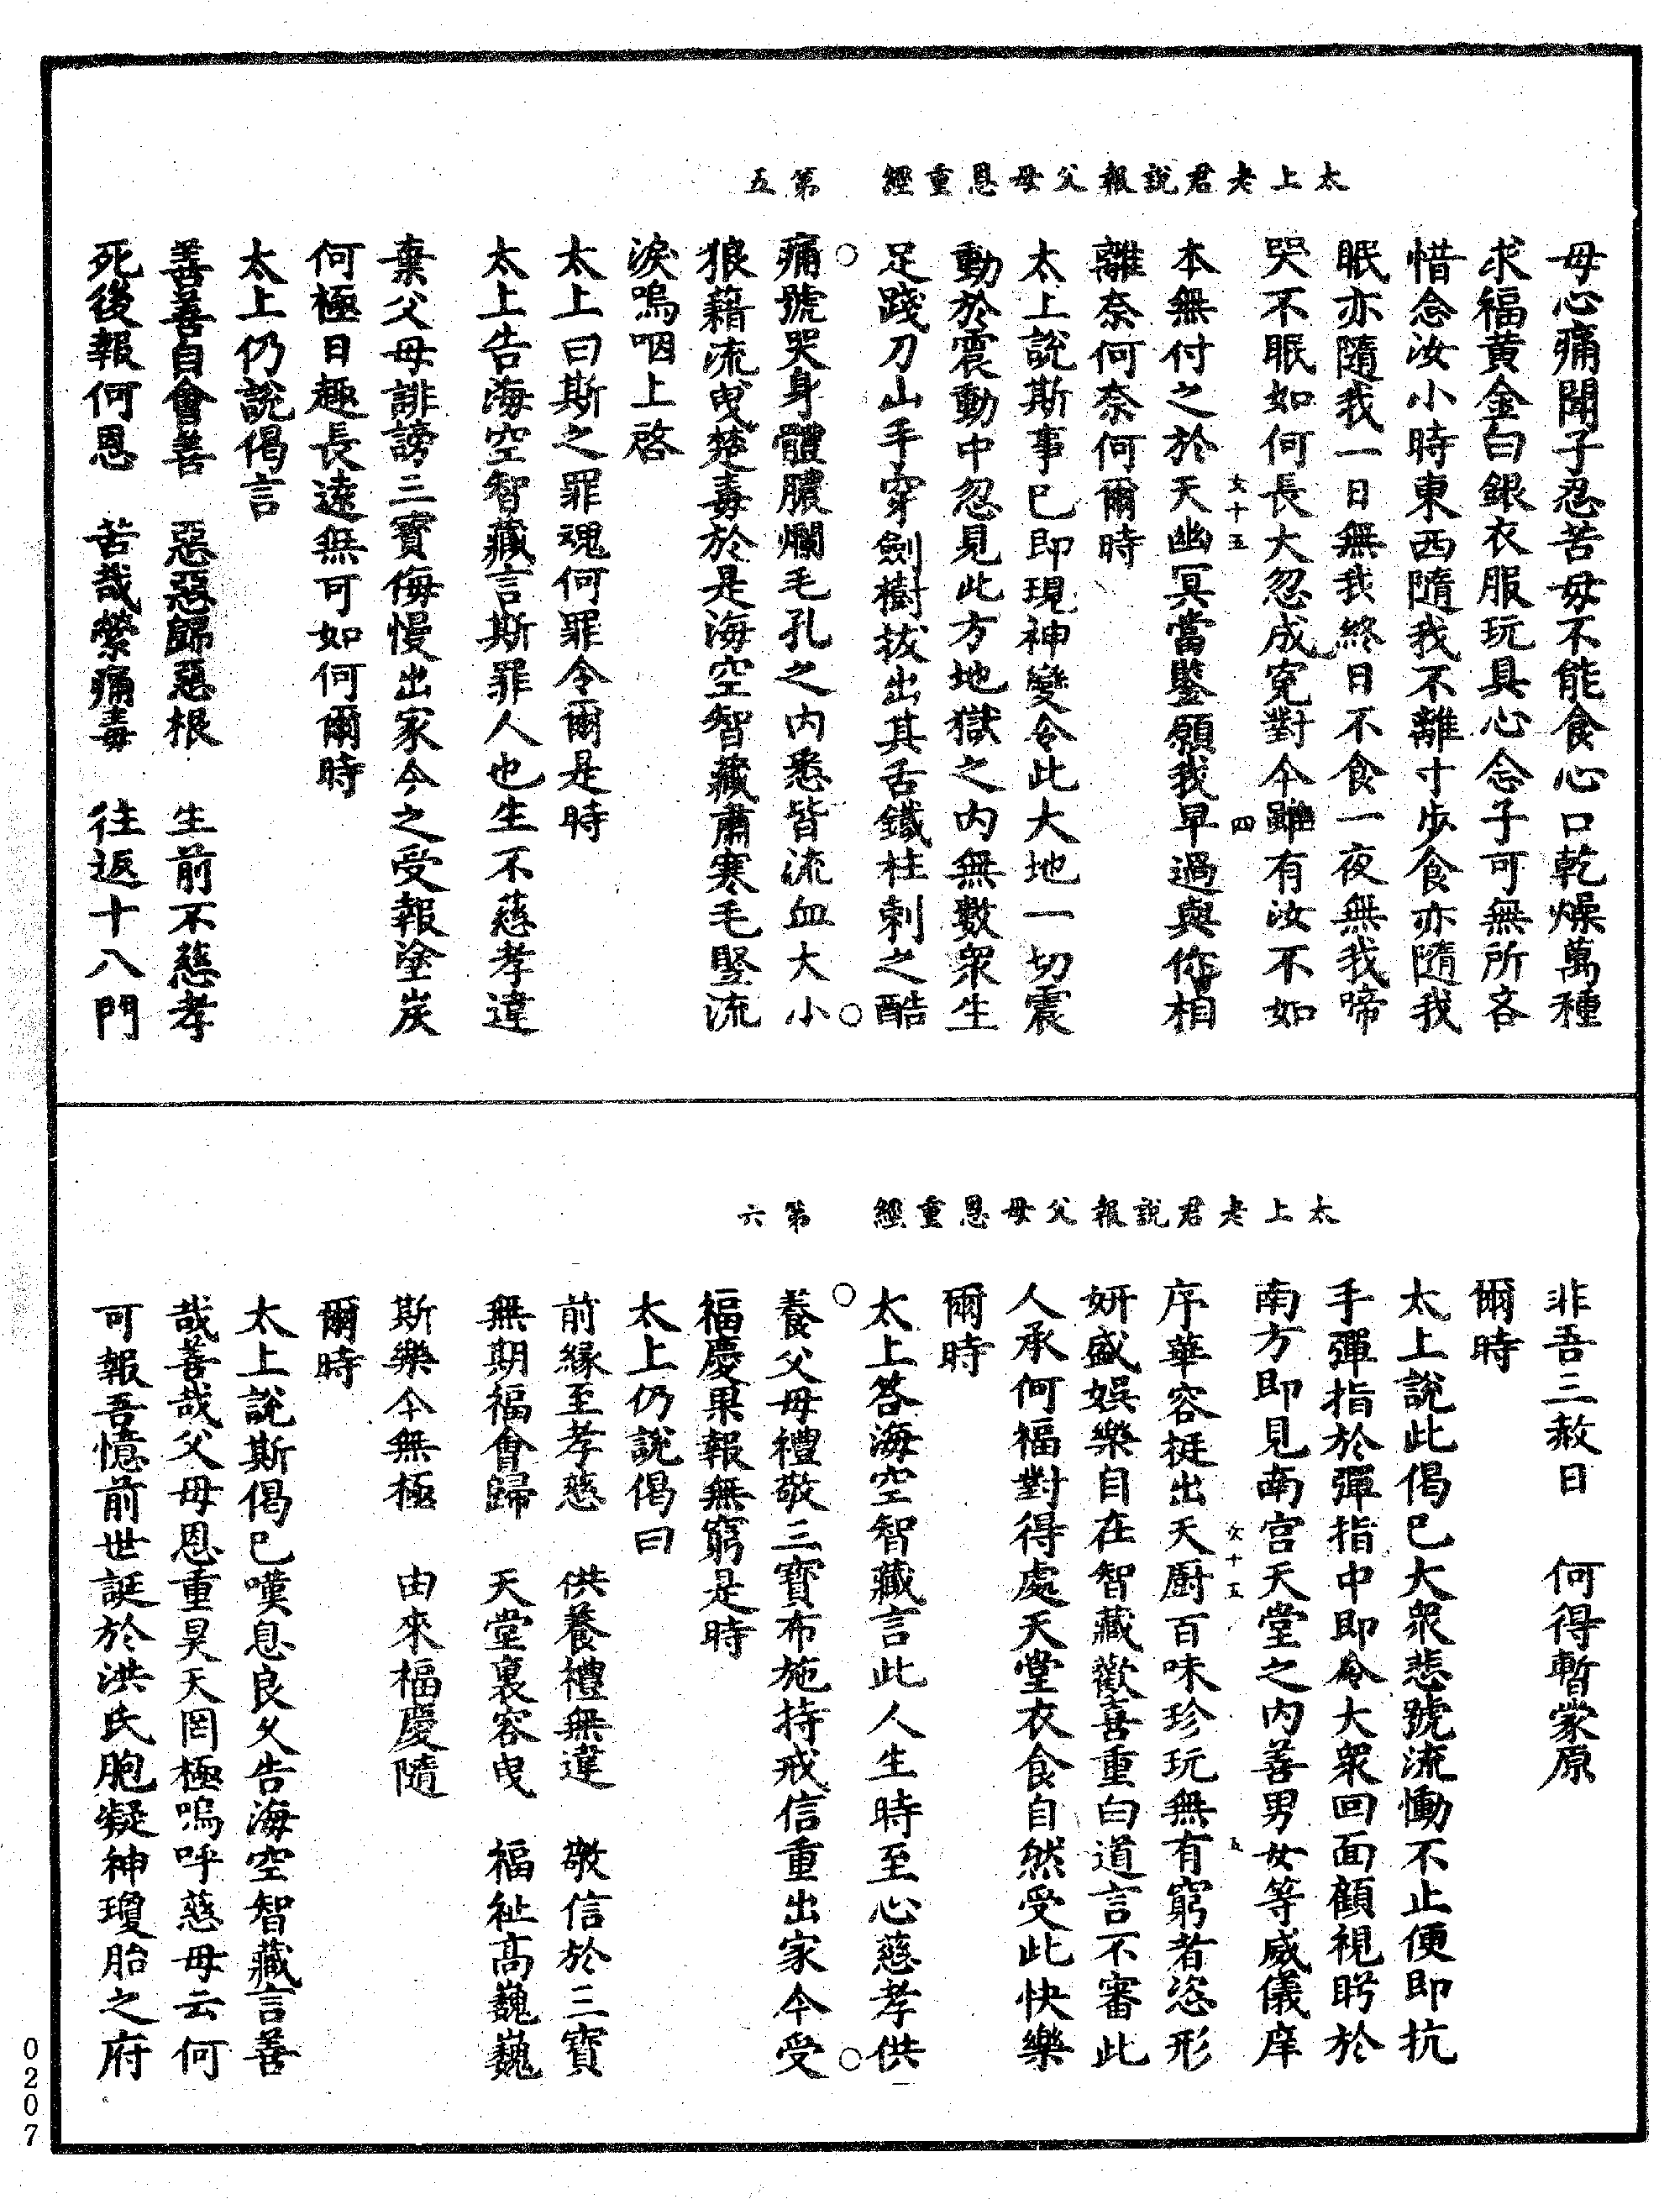 太上老君說報父母恩重經　第五
母心痛聞子忍苦母不能食心口乾燥萬種
求福黃金白銀衣服玩具心念子可無所吝
惜念汝小時東西隨我不離寸步食亦隨我
眠亦隨我一日無我終日不食一夜無我啼
哭不眠如何長大忽成寃對今雖有汝不如
女十五　四
本無付之於天幽冥當鑒願我早過與你相
離奈何奈何爾時
太上說斯事已即現神變令此大地一切震
動於震動中忽見此方地獄之内無數衆生
足踐刀山手穿劍樹拔出其舌鐵柱刺之酷
痛號哭身體膿爛毛孔之内悉皆流血大小
狼藉流曳楚毒於是海空智藏肅寒毛竪流
淚嗚咽上啓
太上曰斯之罪魂何罪令爾是時
太上告海空智藏言斯罪人也生不慈孝違
棄父母誹謗三寶侮慢出家今之受報塗炭
何極日趣長遠無可如何爾時
太上仍說偈言
善善自會善　惡惡歸惡根　生前不慈孝
死後報何恩　苦哉縈痛毒　往返十八門
太上老君說報父母恩重經　第六
非吾三赦日　何得暫蒙原
爾時
太上說此偈已大衆悲號流慟不止便即抗
手彈指於彈指中即令大衆回面顧視眄於
南方即見南宮天堂之内善男女等威儀庠
女十五　五
序華容挺出天厨百味珍玩無有窮者恣形
妍盛娛樂自在智藏歡喜重白道言不審此
人承何福對得處天堂衣食自然受此快樂
爾時
太上答海空智藏言此人生時至心慈孝供
養父母禮敬三寶布施持戒信重出家今受
福慶果報無窮是時
太上仍說偈曰
前緣至孝慈　供養禮無違　敬信於三寶
無期福會歸　天堂裏容曳　福祉高巍巍
斯樂今無極　由來福慶隨
爾時
太上說斯偈已嘆息良久告海空智藏言善
哉善哉父母恩重昊天罔極嗚呼慈母云何
可報吾憶前世誕於洪氏胞凝神瓊胎之府
0207